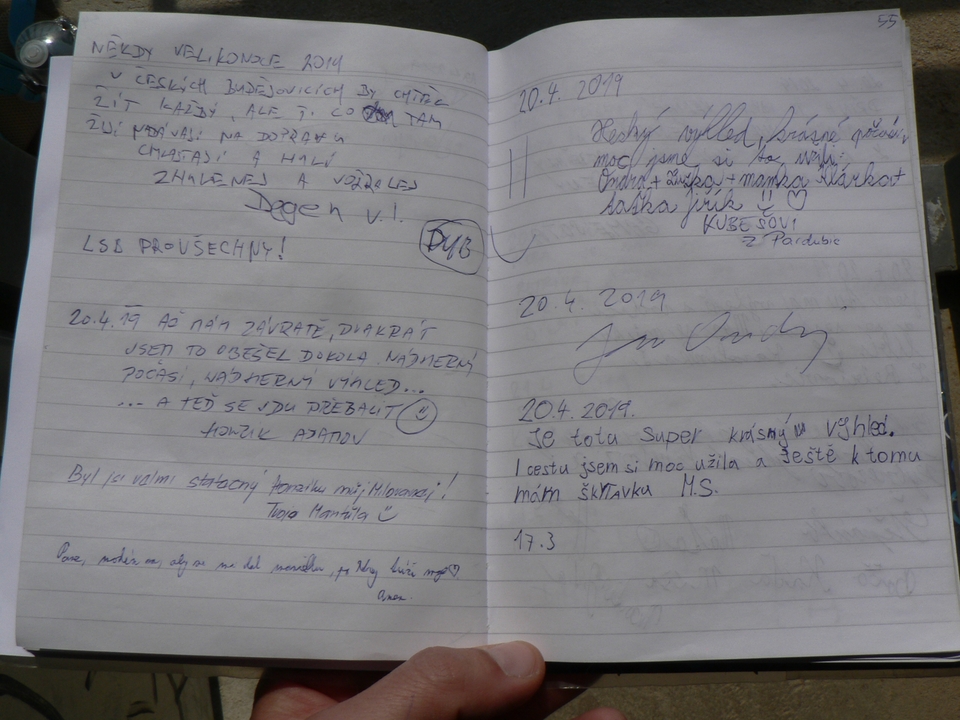 NĚKDY VELIKONOCE 2019
V ČESKÝCH BUDĚJOVICÍCH BY CHTĚL
ŽÍT KAŽDÝ, ALE TI CO TAM
ŽIJÍ NADÁVAJÍ NA DOPRAVU
CHLASTAJÍ A HULÍ
ZHULENEJ A VOŽRALEJ
Degen v.!.
DYB
LSB PRO VŠECHNY!
20.4.19 AČ MÁM ZÁVRATĚ, DVAKRÁT
JSEM TO OBEŠEL DOKOLA. NÁDHERNÝ
POČASÍ, NÁDHERNÝ VÝHLED...
... A TEĎ SE JDU PŘEBALIT
HONZÍK ADAMOV
Byl jsi velmi statečný Honzíku můj
Tvoje
55
20.4. 2019
Hezký výhled, krásné počasí,
moc jsme si to užili.
Ondra + Zuzka + mamka Markét
taťka Jiřík !! ♡
KUBEŠOVI
z Pardubic
20.4.2019
20.4.2019.
Je totu super krásný výhled.
I cestu jsem si moc užila a ještě k tomu
mám škytavku M.S.
17.3